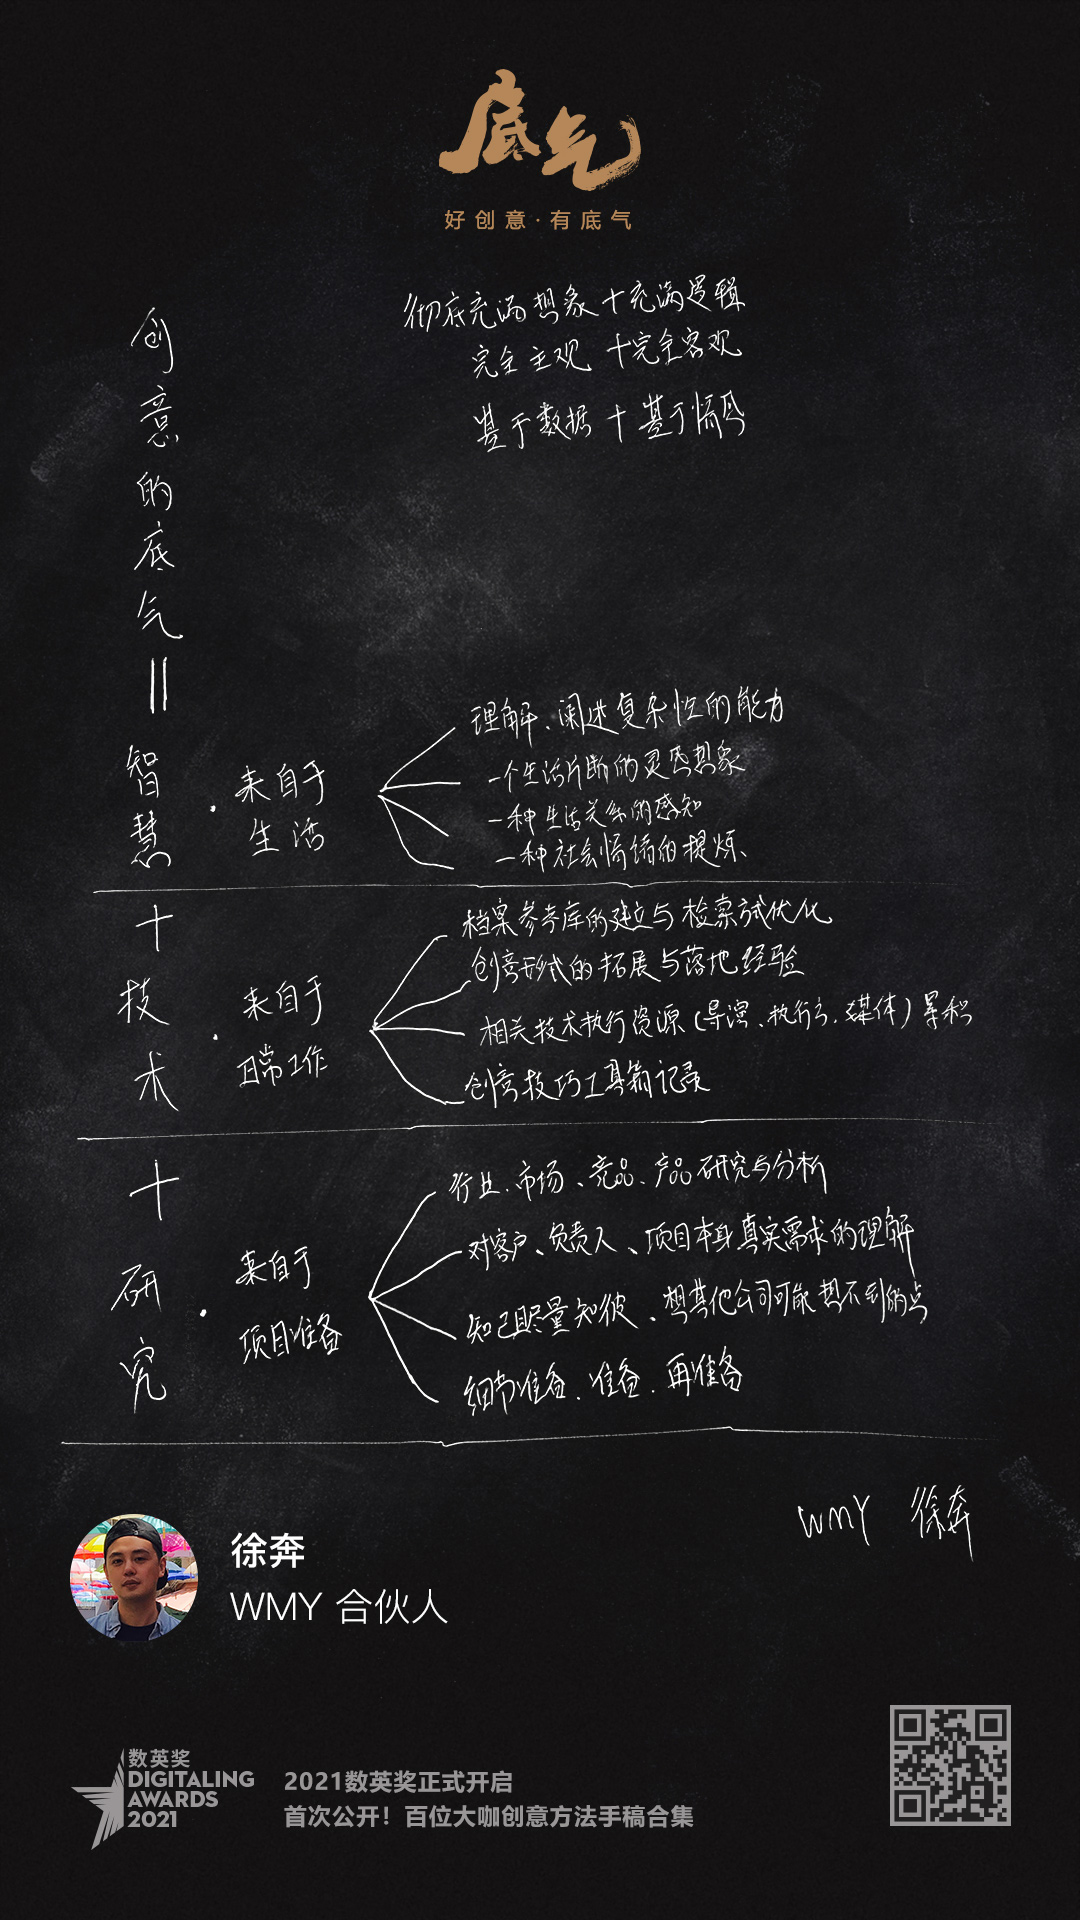 底气
好创意·有底气
彻底充满想象+充满逻辑
完全主观 +完全客观
基于数据 + 基于情感
创意的底气=智慧+技术+研究
·来自于
生活
理解、阐述复杂性的能力
一个生活片断的灵感想象
一种生活关系的感知
一种社会情绪的提炼、
·来自于
日常工作
档案参考库的建立与检索式优化
创意形式的拓展与落地经验
相关技术执行资源(导演、执行方、媒体)累积
创意技巧工具箱记录
·来自于
项目准备
行业、市场、竞品、产品研究与分析
对客户、负责人、项目本身真实需求的理解
知己尽量知彼、想其他公司可能想不到的点
细节准备、准备、再准备
WMY 徐奔
徐奔
WMY 合伙人
数英奖
DIGITALING
AWARDS
2021
2021数英奖正式开启
首次公开！百位大咖创意方法手稿合集